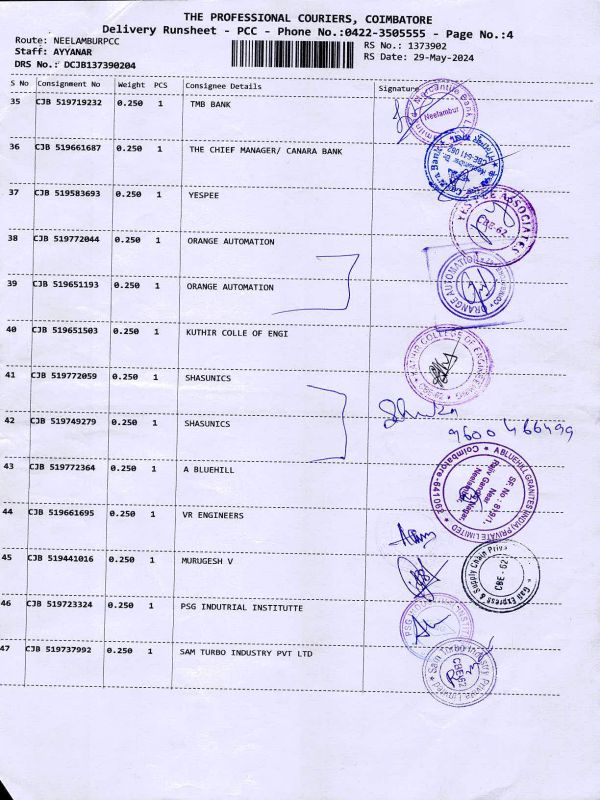 THE PROFESSIONAL COURIERS, COIMBATORE
Delivery Runsheet - PCC - Phone No.:0422-3505555 - Page No.:4
Route: NEELAMBURPCC
Staff: AYYANAR
DRS No.: DCJB137390204
RS No.: 1373902
RS Date: 29-May-2024
S No Consignment No Weight PCS Consignee Details Signature
35 CJB 519719232 0.250 1 TMB BANK
Neelambur
36 CJB 519661687 0.250 1 THE CHIEF MANAGER/ CANARA BANK
37 CJB 519583693 0.250 1 YESPEE
YES PEE ASSOCIATES
CBE-62
38 CJB 519772044 0.250 1 ORANGE AUTOMATION
39 CJB 519651193 0.250 1 ORANGE AUTOMATION
ORANGE AUTOMATION
40 CJB 519651503 0.250 1 KUTHIR COLLE OF ENGI
KATHIR COLLEGE OF ENGINEERING
41 CJB 519772059 0.250 1 SHASUNICS
42 CJB 519749279 0.250 1 SHASUNICS
9600 466499
43 CJB 519772364 0.250 1 A BLUEHILL
A BLUEHILL GRANITES (INDIA) PRIVATE LIMITED
SF. No : 819/1,
Rajiv Gandhi Nagar,
Near
44 CJB 519661695 0.250 1 VR ENGINEERS
45 CJB 519441016 0.250 1 MURUGESH V
Gati Express & Supply Chain Priva
CBE - 62
46 CJB 519723324 0.250 1 PSG INDUTRIAL INSTITUTTE
47 CJB 519737992 0.250 1 SAM TURBO INDUSTRY PVT LTD
Sam Turbo Industry Private Limited
CBE-62